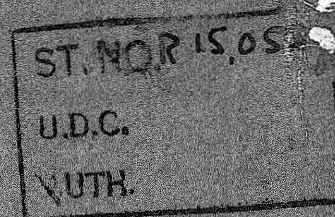 ST. NO. R 15,05
U.D.C.
AUTH.